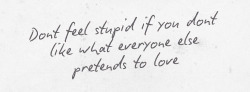 Dont feel stupid if you dont
like what everyone else
pretends to love